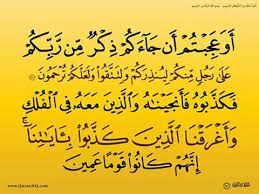 أَوَعَجِبۡتُمۡ أَن جَآءَكُمۡ ذِكۡرٌ مِّن رَّبِّكُمۡ
عَلَىٰ رَجُلٍ مِّنكُمۡ لِيُنذِرَكُمۡ وَلِتَتَّقُواْ وَلَعَلَّكُمۡ تُرۡحَمُونَ
فَكَذَّبُوهُ فَأَنجَيۡنَٰهُ وَٱلَّذِينَ مَعَهُۥ فِي ٱلۡفُلۡكِ
وَأَغۡرَقۡنَا ٱلَّذِينَ كَذَّبُواْ بِـَٔايَٰتِنَآۚ
إِنَّهُمۡ كَانُواْ قَوۡمًا عَمِينَ
www.QuranHQ.com